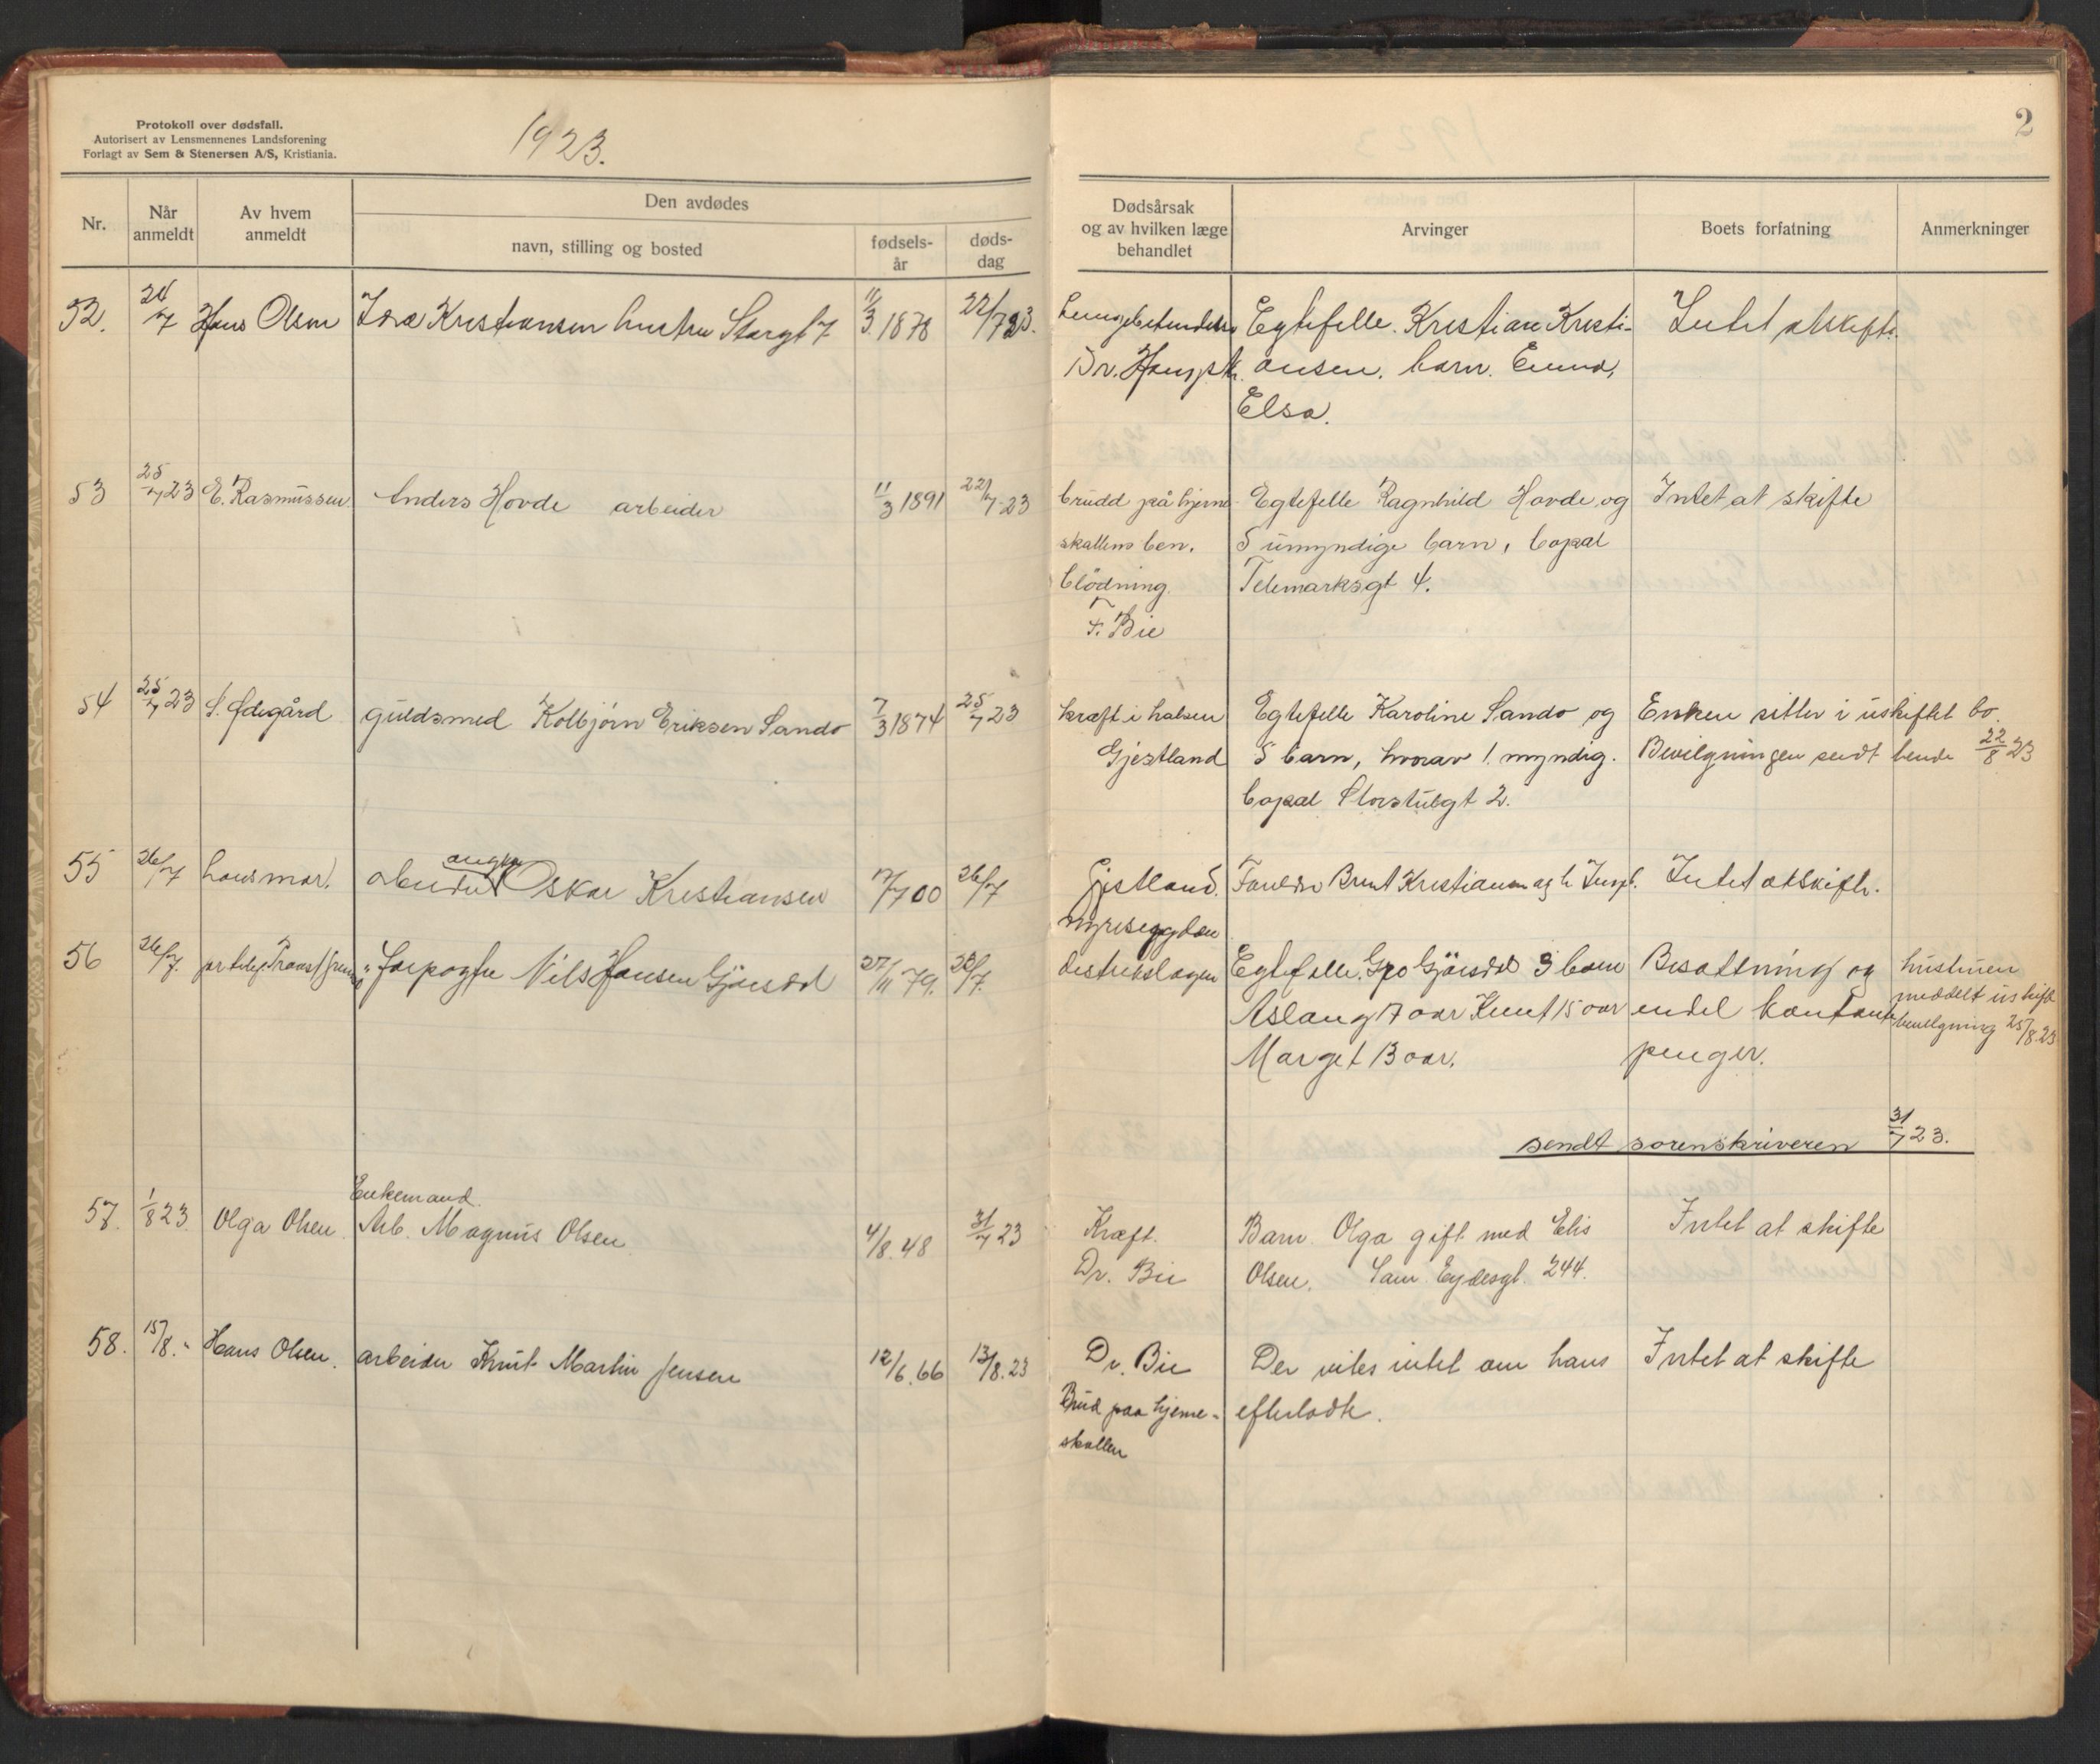 Protokoll over dødsfall.
Autorisert av Lensmennenes Landsforening
Forlagt av Sem & Stenersen A/S, Kristiania.
1923.
2
Nr.
Når anmeldt
Av hvem anmeldt
Den avdødes
navn, stilling og bosted
fødsels-år
døds-dag
Dødsårsak og av hvilken læge behandlet
Arvinger
Boets forfatning
Anmerkninger
52. 24/7 Hans Olsen Kristiansen hustru Storgt 7 11/3 1878 22/7 23. Egtefelle. Kristian Kristi- Intet at skifte.
Dr. ansen. barn.
Elsa.
53 25/7 23 E. Rasmussen Anders Hovde arbeider 11/3 1891 22/7 23 brudd på hjerne- Egtefelle Ragnhild Hovde og Intet at skifte
skallens ben. 5 umyndige barn, bopæl
blödning. Telemarksgt 4.
F. Bie
54 25/7 23 S. Ødegård guldsmed Kolbjörn Eriksen Sando 7/3 1874 25/7 23 kræft i halsen Egtefelle Karoline Sando og Enken sitter i uskiftet bo.
Gjestland 5 barn, hvorav 1 myndig. Bevilgningen sendt hende 22/8 23
bopæl 2.
55 26/7 arbeider Oskar Kristiansen 17/7 00 26/7 Gjestland. Kristiansen Intet at skifte.
56 26/7. Nils Hansen Gjøisdal 27/11 79. distriktslægen Egtefelle. Gro 3 barn Besætning og hustruen
Aslaug 17 aar Knut 15 aar endel kontante meddelt uskift
Marget 13 aar. penger. bevilgning 25/8 23
sendt sorenskriveren 31/7 23.
Enkemand.
57. 1/8 23. Olga Olsen. Arb. Magnus Olsen 4/8. 48 31/7 23 Kræft. Barn. Olga gift med Elis Intet at skifte
Dr. Bie Olsen. Sam Eydesgt. 244.
58. 15/8. " Hans Olsen. arbeider Knut Martin Jensen 12/6. 66 13/8. 23 Dr. Bie Der vites intet om hans Intet at skifte
Brud paa hjerne- efterladte.
skallen